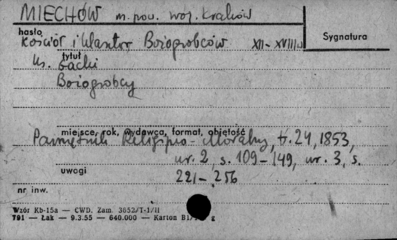 MIECHÓW m. pow. woj. Kraków
hasło
Kościół i klasztor Bożogrobców XII-XVIII w
Sygnatura
tytuł
Ks. Gacki
Bożogrobcy
miejsce, rok, wydawca, format, objętość
Pamiętnik Religijno-Moralny, t. 24, 1853,
nr. 2, s. 109-149, nr. 3, s.
uwagi
221-256
nr inw.
Wzór Kb-15a — CWD. Zam. 3852/T-1/II
791 — Łak — 9.3.55 — 640.000 — Karton B1/ g